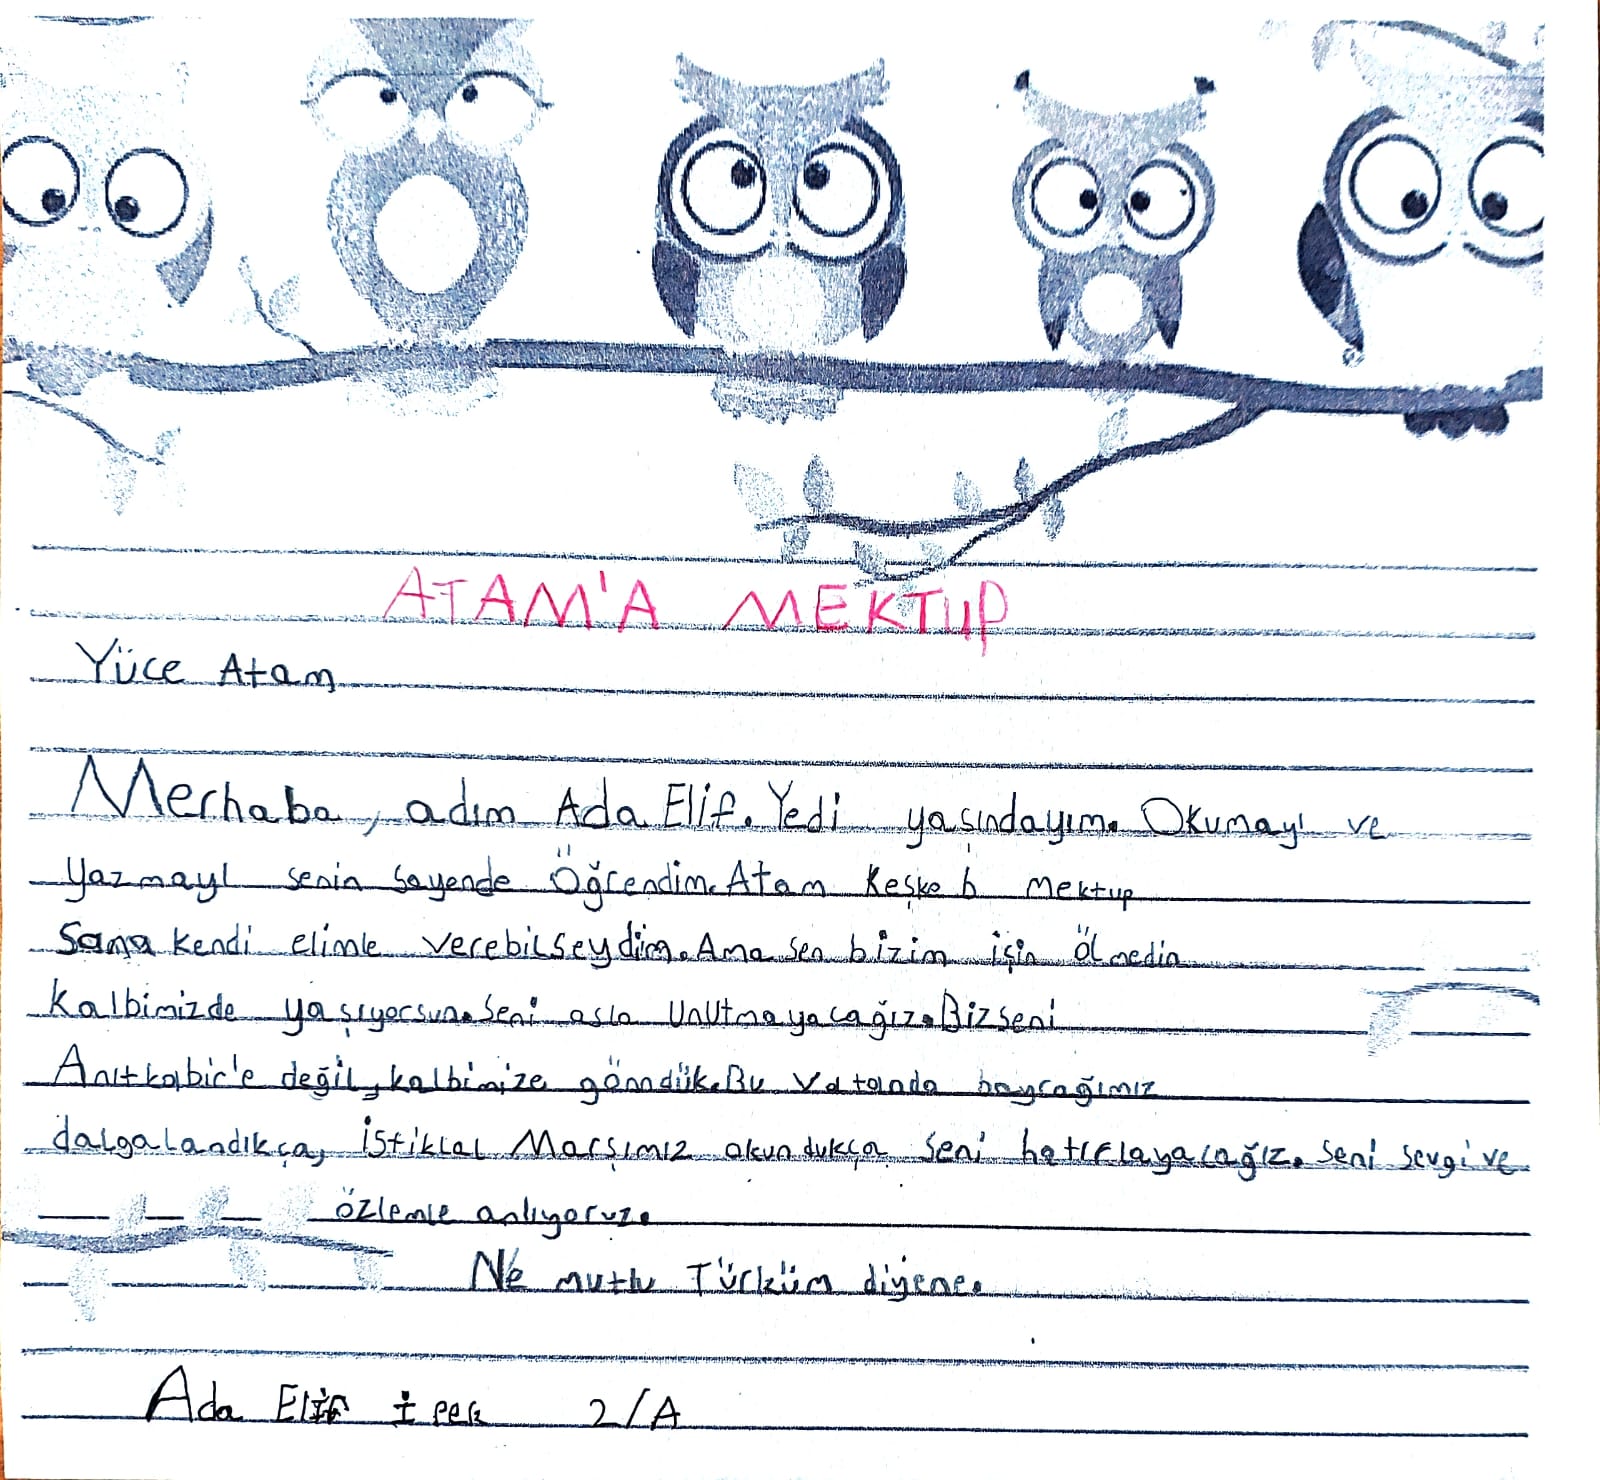 ATAM'A MEKTUP
Yüce Atam
Merhaba, adım Ada Elif. Yedi yaşındayım. Okumayı ve
yazmayı senin sayende Öğrendim. Atam Keşke b mektup
Sana kendi elimle verebilseydim. Ama sen bizim için ölmedin
kalbimizde yaşıyorsun. Seni asla Unutmayacağız. Biz seni
Anıtkabir'e değil, kalbimize gömdük. Bu Vatanda bayrağımız
dalgalandıkça, istiklal Marşımız okundukça seni hatırlayacağız. Seni sevgi ve
özlemle anıyoruz.
Ne mutlu Türküm diyene.
Ada Elif İpek 2/A